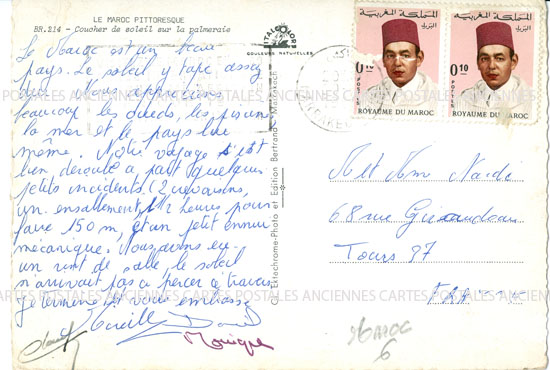 LE MAROC PITTORESQUE
BR.214 - Coucher de soleil sur la palmeraie
Le Maroc est un beau
pays. Le soleil y tape assez
Nous apprécions
beaucoup les oueds, les piscines
la mer et le pays lui
même. Notre voyage s'est
bien déroulé à part quelques
petits incidents (2 crevaisons,
un ensablement, 1h½ pour
faire 150 m, et un petit ennui
mécanique. Nous avons eu
un vent de sable, le soleil
n'arrivait pas à percer à travers
Je termine et vous embrasse
Mireille
Monique
ITALCOLOR
COULEURS NATURELLES
Ektachrome-Photo et Edition Bertrand - Marrakech
المملكة المغربية
البريد
0,10
POSTES
ROYAUME DU MAROC
المملكة المغربية
البريد
0,10
POSTES
ROYAUME DU MAROC
M et Mme
68 rue
Tours 37
FRANCE
Maroc
6
POSTALES ANCIENNES CARTES POSTALES ANCIENNES CARTES POSTALES ANCIENNES CARTES POSTALES
CARTES POSTALES ANCIENNES CARTES POSTALES ANCIENNES CARTES POSTALES ANCIENNES